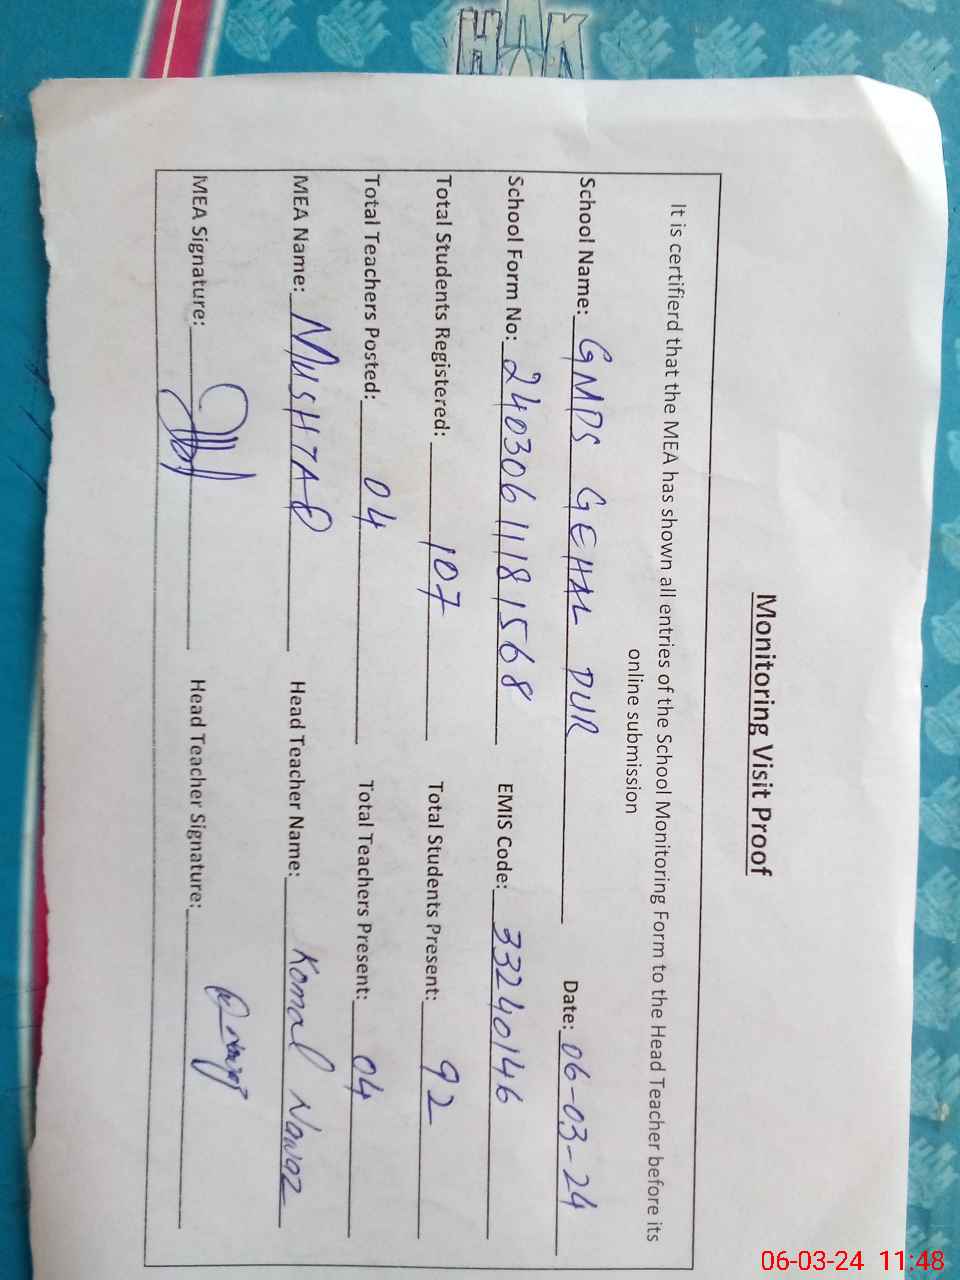 Monitoring Visit Proof
It is certifierd that the MEA has shown all entries of the School Monitoring Form to the Head Teacher before its
online submission
School Name: GMPS GEHAL PUR Date: 06-03-24
School Form No: 2403061118 1568 EMIS Code: 33240146
Total Students Registered: 107 Total Students Present: 92
Total Teachers Posted: 04 Total Teachers Present: 04
MEA Name: MUSHTAQ Head Teacher Name: Komal Nawaz
MEA Signature: Head Teacher Signature:
06-03-24 11:48